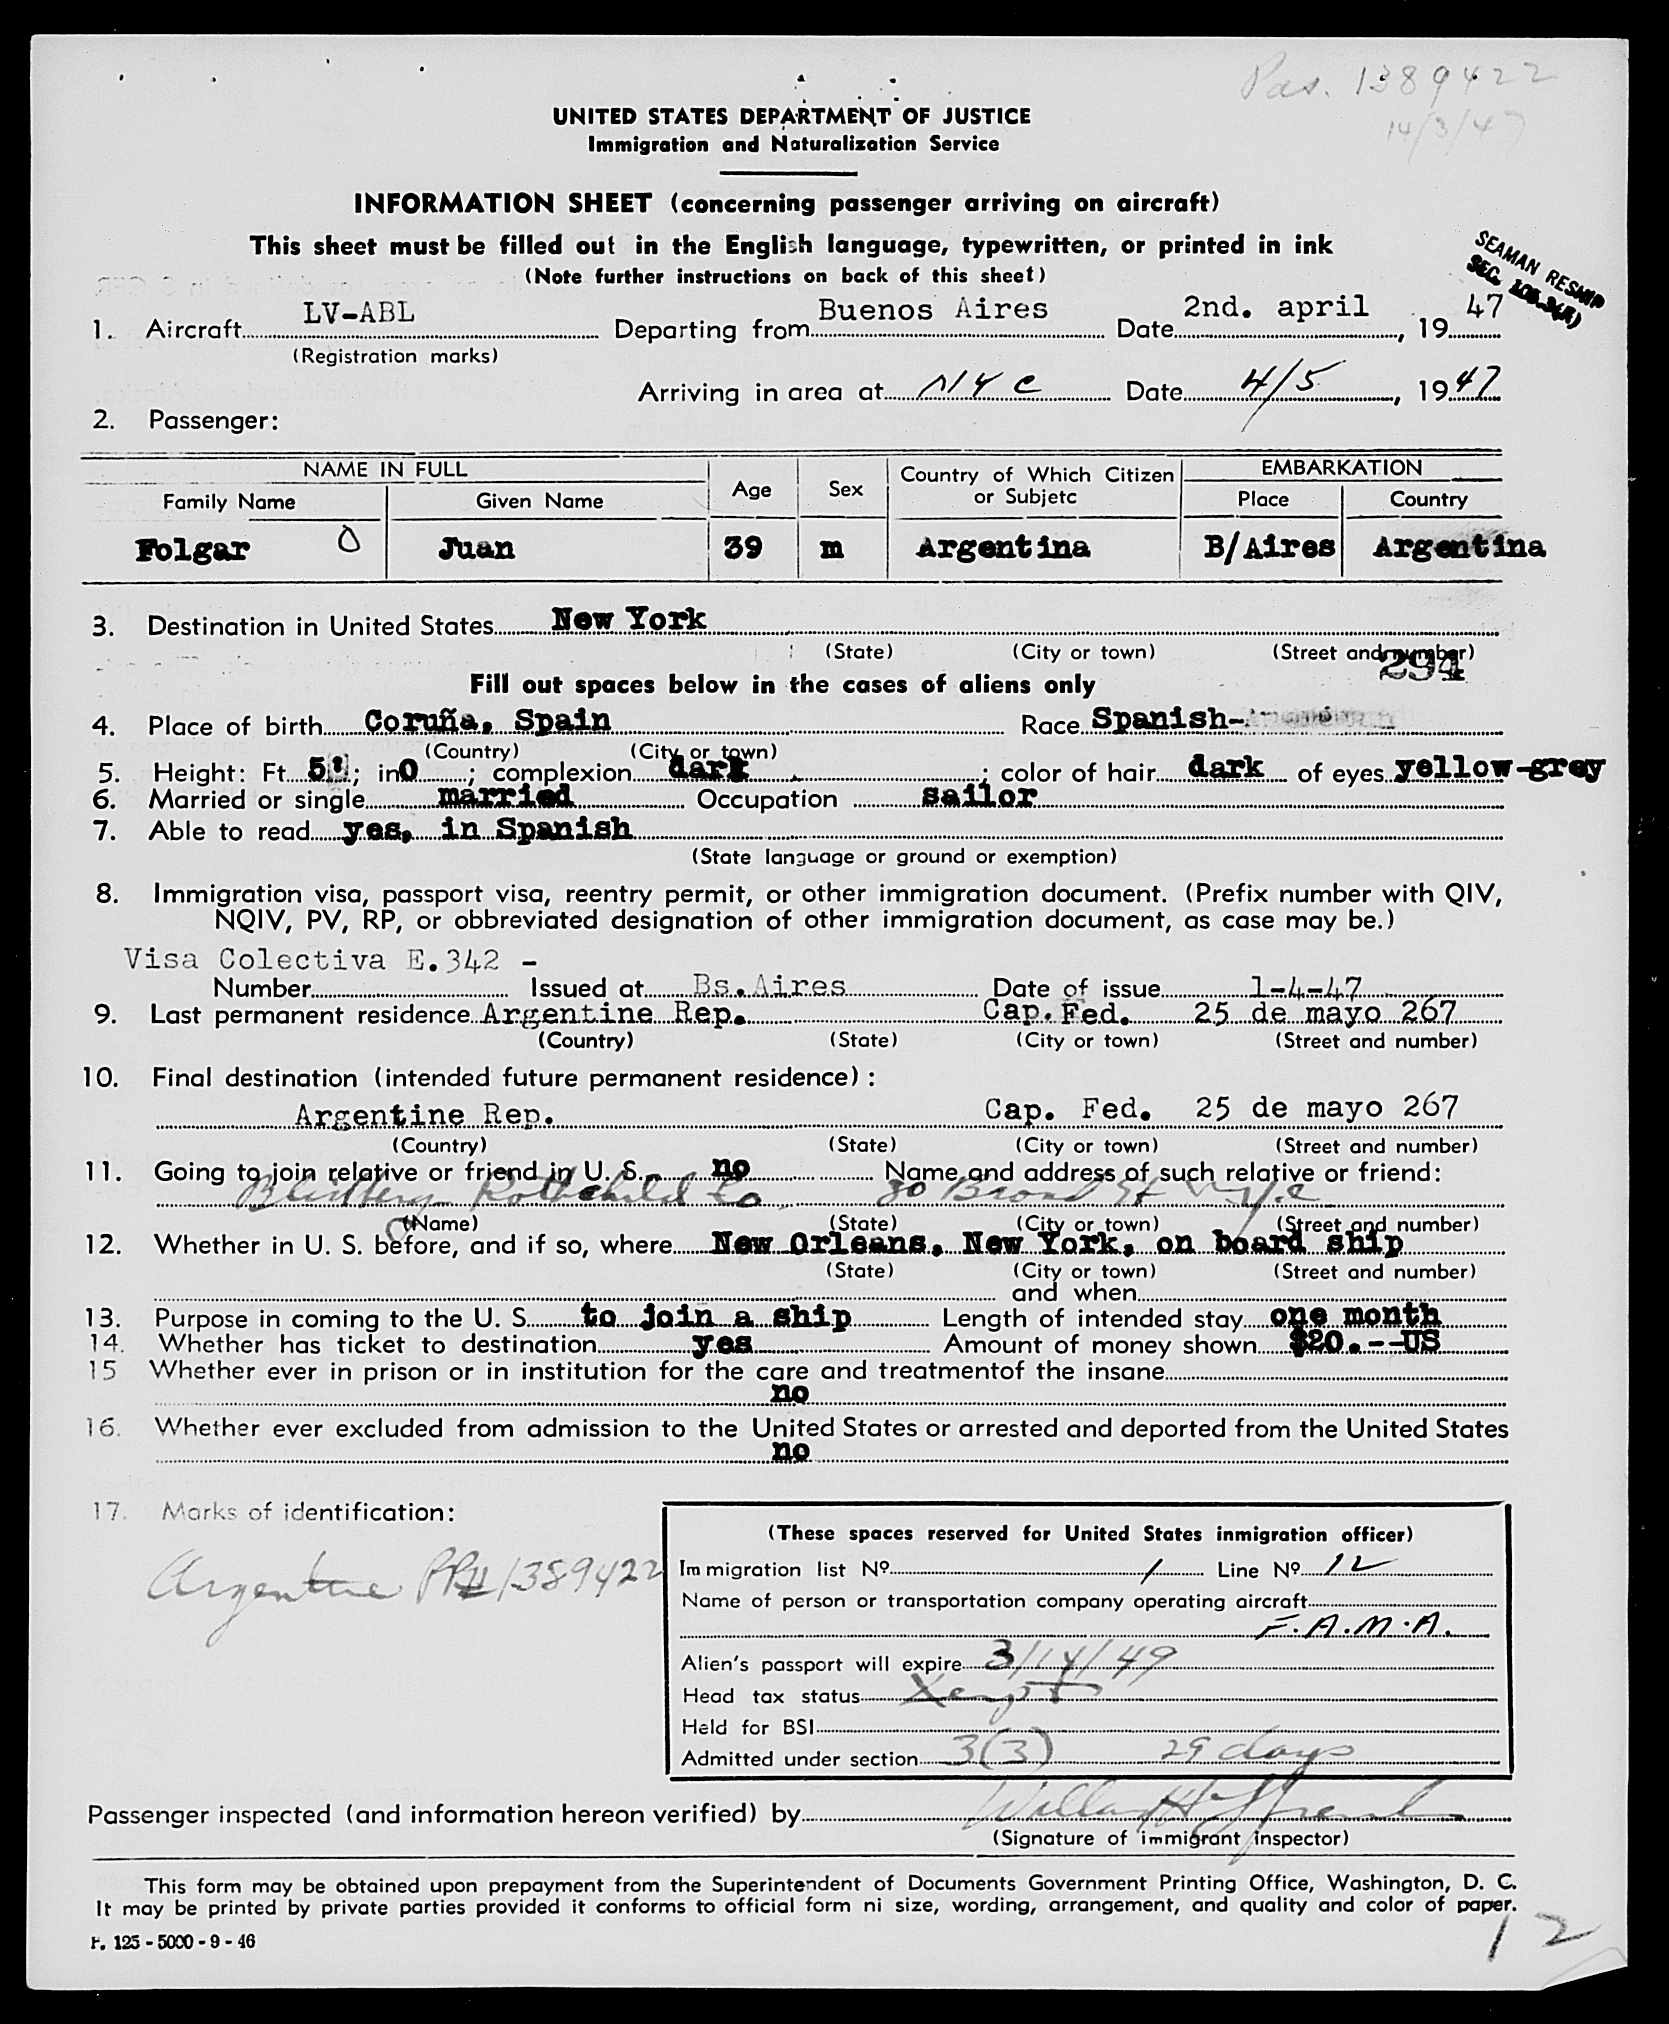 Pas. 1389422
14/3/47
UNITED STATES DEPARTMENT OF JUSTICE
Immigration and Naturalization Service
INFORMATION SHEET (concerning passenger arriving on aircraft)
This sheet must be filled out in the English language, typewritten, or printed in ink
(Note further instructions on back of this sheet)
SEAMAN
SEC.
1. Aircraft LV-ABL Departing from Buenos Aires Date 2nd. april, 19 47
(Registration marks)
Arriving in area at NYC Date 4/5, 19 47
2. Passenger:
NAME IN FULL Age Sex Country of Which Citizen or Subjetc EMBARKATION
Family Name Given Name Place Country
Folgar O Juan 39 m Argentina B/Aires Argentina
3. Destination in United States New York
(State) (City or town) (Street and number)
294
Fill out spaces below in the cases of aliens only
4. Place of birth Coruña, Spain Race Spanish-
(Country) (City or town)
5. Height: Ft. 5; in 0; complexion dark; color of hair dark of eyes yellow-grey
6. Married or single married Occupation sailor
7. Able to read yes, in Spanish
(State language or ground or exemption)
8. Immigration visa, passport visa, reentry permit, or other immigration document. (Prefix number with QIV,
NQIV, PV, RP, or obbreviated designation of other immigration document, as case may be.)
Visa Colectiva E.342 -
Number Issued at Bs.Aires Date of issue 1-4-47
9. Last permanent residence Argentine Rep. Cap. Fed. 25 de mayo 267
(Country) (State) (City or town) (Street and number)
10. Final destination (intended future permanent residence):
Argentine Rep. Cap. Fed. 25 de mayo 267
(Country) (State) (City or town) (Street and number)
11. Going to join relative or friend in U. S. no Name and address of such relative or friend:
Rothchild Co 80 Broad St NYC
(Name) (State) (City or town) (Street and number)
12. Whether in U. S. before, and if so, where New Orleans, New York, on board ship
(State) (City or town) (Street and number)
and when
13. Purpose in coming to the U. S. to join a ship Length of intended stay one month
14. Whether has ticket to destination yes Amount of money shown $20.--US
15 Whether ever in prison or in institution for the care and treatmentof the insane
no
16. Whether ever excluded from admission to the United States or arrested and deported from the United States
no
17. Marks of identification:
Argentine PP# 1389422
(These spaces reserved for United States inmigration officer)
Immigration list Nº 1 Line Nº 12
Name of person or transportation company operating aircraft
F.A.M.A.
Alien's passport will expire 3/14/49
Head tax status Xempt
Held for BSI
Admitted under section 3(3) 29 days
Passenger inspected (and information hereon verified) by
(Signature of immigrant inspector)
This form may be obtained upon prepayment from the Superintendent of Documents Government Printing Office, Washington, D. C.
It may be printed by private parties provided it conforms to official form ni size, wording, arrangement, and quality and color of paper.
F. 125 - 5000 - 9 - 46
12